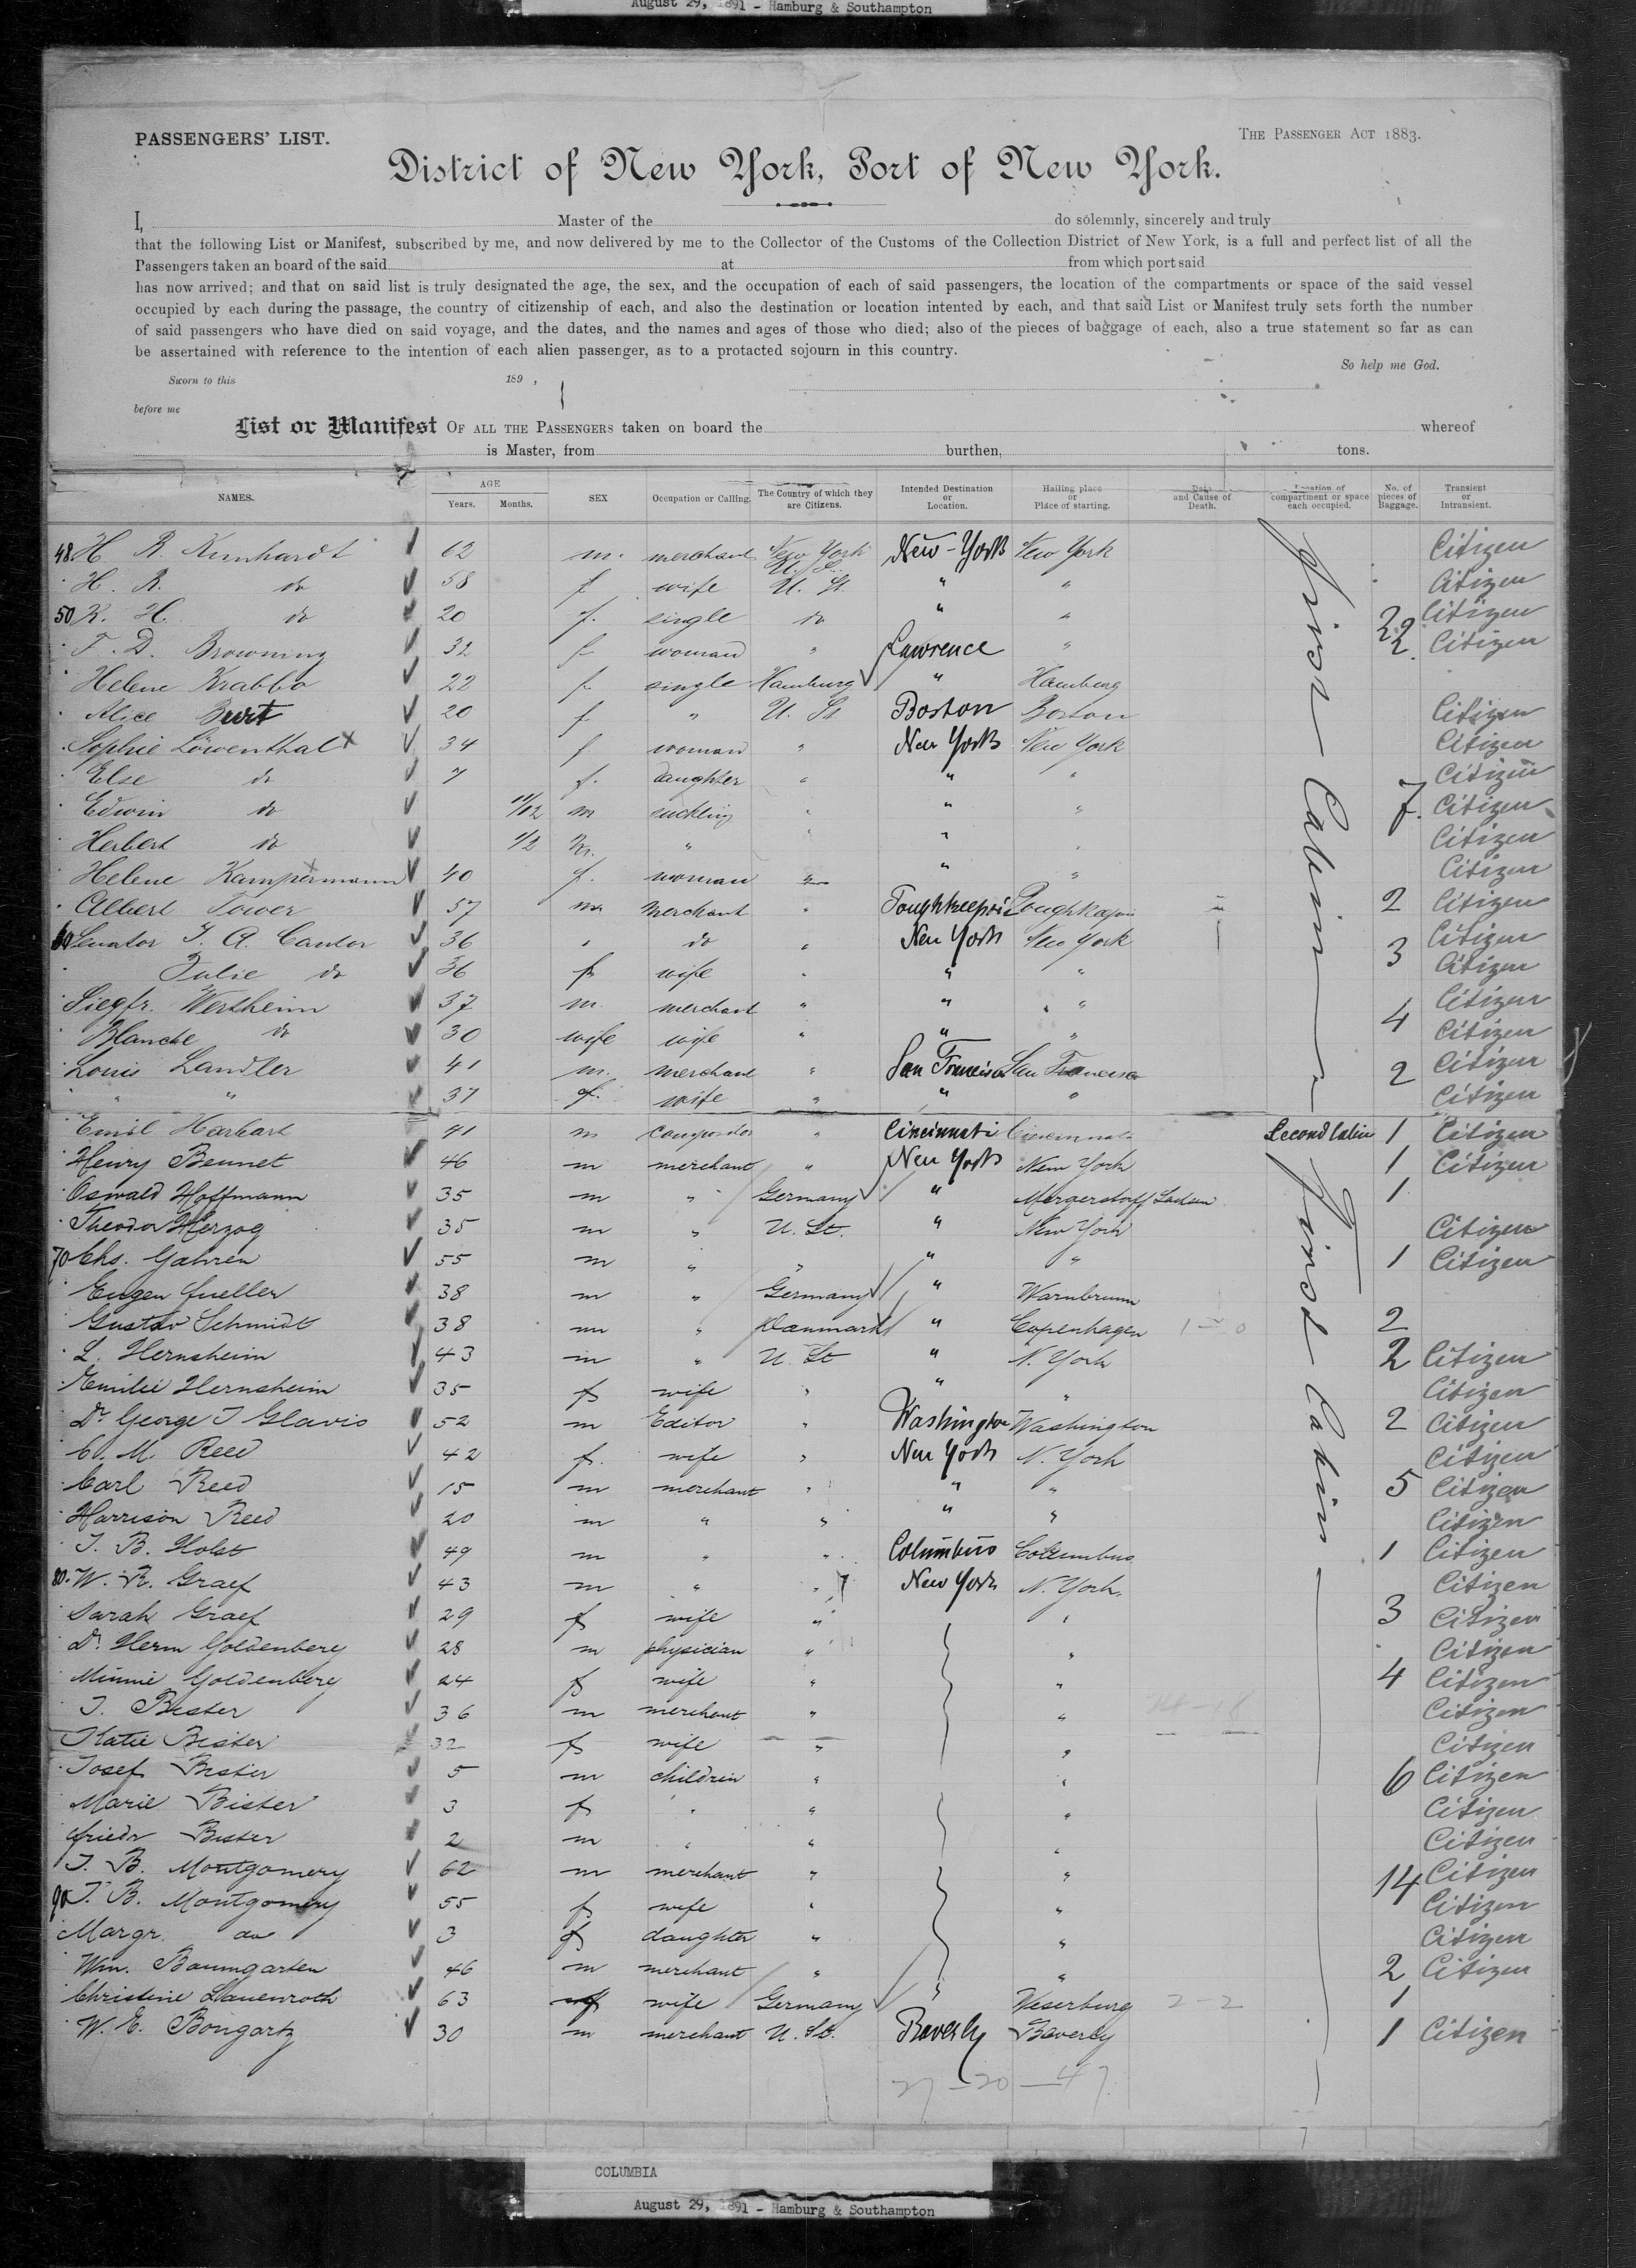 August 29, 1891 - Hamburg & Southampton
PASSENGERS' LIST.
THE PASSENGER ACT 1883.
District of New York, Port of New York.
I, Master of the do solemnly, sincerely and truly
that the following List or Manifest, subscribed by me, and now delivered by me to the Collector of the Customs of the Collection District of New York, is a full and perfect list of all the
Passengers taken an board of the said at from which port said
has now arrived; and that on said list is truly designated the age, the sex, and the occupation of each of said passengers, the location of the compartments or space of the said vessel
occupied by each during the passage, the country of citizenship of each, and also the destination or location intented by each, and that said List or Manifest truly sets forth the number
of said passengers who have died on said voyage, and the dates, and the names and ages of those who died; also of the pieces of baggage of each, also a true statement so far as can
be assertained with reference to the intention of each alien passenger, as to a protacted sojourn in this country.
So help me God.
Sworn to this 189 ,
before me
List or Manifest OF ALL THE PASSENGERS taken on board the whereof
is Master, from burthen, tons.
NAMES. AGE Years. Months. SEX Occupation or Calling. The Country of which they are Citizens. Intended Destination or Location. Hailing place or Place of starting. Date and Cause of Death. Location of compartment or space each occupied. No. of pieces of Baggage. Transient or Intransient.
First Cabin
48 H. R. Kunhardt 62 m. merchant New York U. S. New-York New York Citizen
H. R. do 58 f wife U. St. " " Citizen
50 K. H. do 20 f. single do " " 22 Citizen
F. D. Browning 32 f woman " Lawrence " 2 Citizen
Helene Krabbo 22 f single Hamburg " Hamburg
Alice Burt 20 f " U. St Boston Boston Citizen
Sophie Löwenthal x 34 f woman " New York New York Citizen
Else do 7 f. daughter " " " Citizen
Edwin do 11/12 m suckling " " " 7. Citizen
Herbert do 1/2 m. " " " Citizen
Helene Kampermann 40 f. woman " " " Citizen
Albert Tower 57 m merchant " Poughkeepsie 2 Citizen
60 Senator J. A. Cantor 36 " do " New York New York 3 Citizen
Julie do 36 f wife " " " Citizen
Siegfr. Wertheim 37 m. merchant " " " 4 Citizen
Blanche do 30 wife wife " " " Citizen
Louis Landler 41 m. merchant " San Francisco San Francisco 2 Citizen
" " 37 f. wife " " " Citizen
Emil Harbart 41 m compositor " Cincinnati Cincinnati Second Cabin 1 Citizen
First Cabin
Henry Bennet 46 m merchant " New York New York 1 Citizen
Oswald Hoffmann 35 m " Germany " 1
Theodor Herzog 35 m " U. St. " New York Citizen
70 Chs. Gahren 55 m " " " " 1 Citizen
Eugen Fueller 38 m " Germany " Warnbrunn
Gustav Schmidt 38 m " Danmark " Copenhagen 2
L. Hernsheim 43 m " U. St " N. York 2 Citizen
Emilie Hernsheim 35 f wife " " " Citizen
Dr George J Glavis 52 m Editor " Washington Washington 2 Citizen
C. M. Reed 42 f. wife " New York N. York Citizen
Carl Reed 15 m merchant " " " 5 Citizen
Harrison Reed 20 m " " " " Citizen
J. B. Holst 49 m " " Columbus Columbus 1 Citizen
80. W. R. Graef 43 m " " New York N. York. Citizen
Sarah Graef 29 f wife " " 3 Citizen
Dr. Herm Goldenberg 28 m physician " " Citizen
Minnie Goldenberg 24 f wife " " 4 Citizen
J. Bister 36 m merchant " " Citizen
Katie Bister 32 f wife " " Citizen
Josef Bister 5 m children " " 6 Citizen
Marie Bister 3 f " " " Citizen
Friedr Bister 2 m " " " Citizen
J. B. Montgomery 62 m merchant " " 14 Citizen
90 J. B. Montgomery 55 f wife " " Citizen
Margr. do 3 f daughter " " Citizen
Wm. Baumgarten 46 m merchant " " 2 Citizen
Christine 63 f wife Germany " Weserburg 2-2 1
W. E. Bongartz 30 m merchant U. St. Beverly Beverly 1 Citizen
27-20-47
COLUMBIA
August 29, 1891 - Hamburg & Southampton